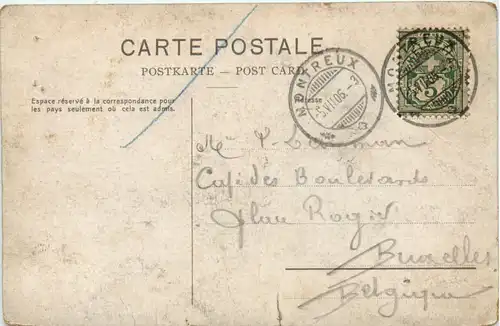 CARTE POSTALE
POSTKARTE — POST CARD
Espace réservé à la correspondance pour
les pays seulement où cela est admis.
Adresse
MONTREUX
MONTREUX
5
Café des Boulevards
Rogier
Bruxelles
Belgique